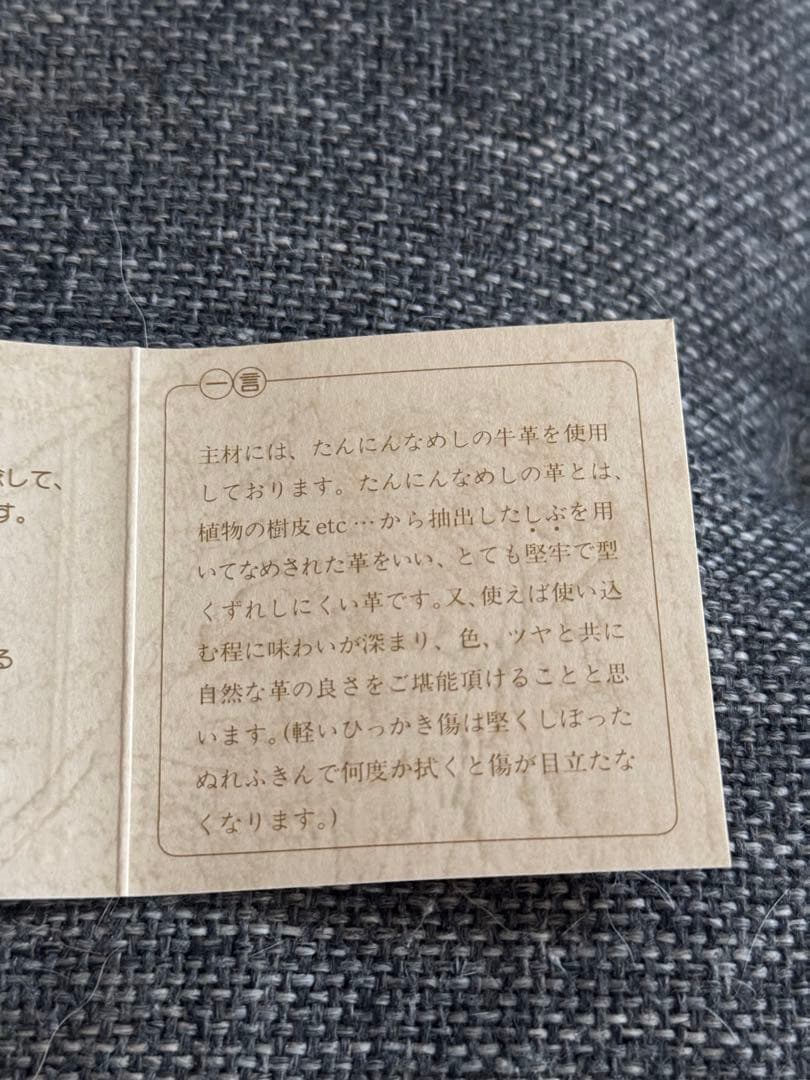 して、
す。
る
一言
主材には、たんにんなめしの牛革を使用
しております。たんにんなめしの革とは、
植物の樹皮etc…から抽出したしぶを用
いてなめされた革をいい、とても堅牢で型
くずれしにくい革です。又、使えば使い込
む程に味わいが深まり、色、ツヤと共に
自然な革の良さをご堪能頂けることと思
います。(軽いひっかき傷は堅くしぼった
ぬれふきんで何度か拭くと傷が目立たな
くなります。)